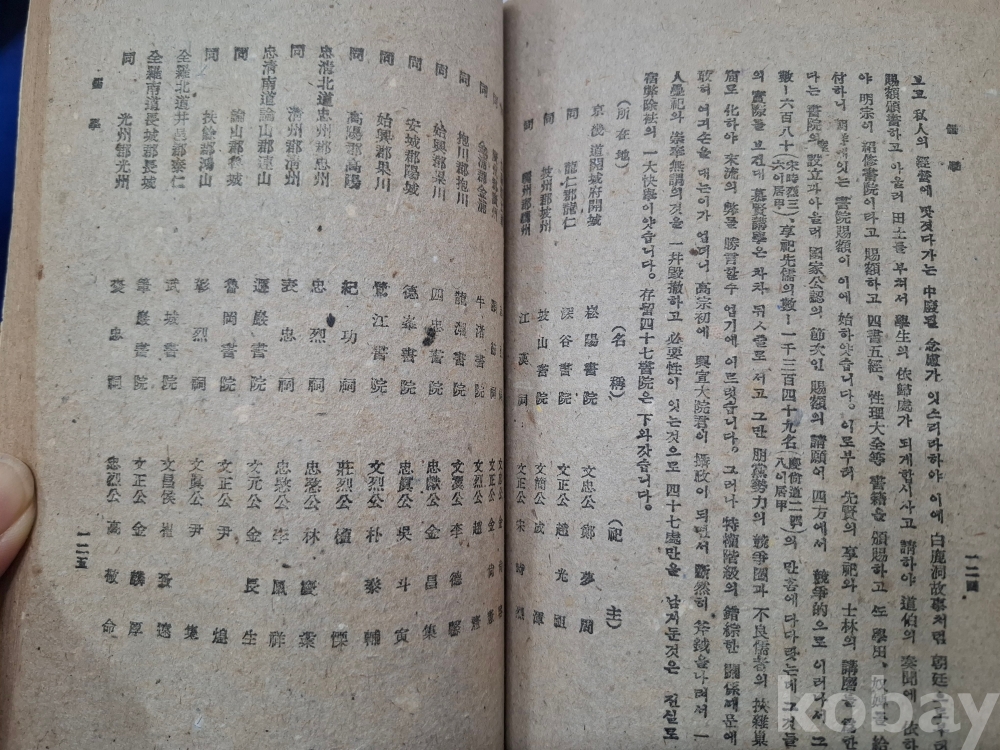 儒學
一二四
보고 私人의 經營에 맛겻다가는 中廢될 念慮가 잇스리라하야 이에 白鹿洞故事처럼 朝廷
賜額頒書하고 아울러 田土를 부처서 學生의 依歸處가 되게합시사고 請하야 道伯의 奏聞에 依하
야 明宗이 紹修書院이라고 賜額하고 四書五經、性理大全等 書籍을 頒賜하고 또 學田、奴婢를 給
付하니 잇는 書院賜額이 이에 始하얏습니다。이로부터 先賢의 享祀와 士林의 講磨를
다는 書院의 設立과아울러 國家公認의 節次인 賜額의 請願이 四方에서 競爭的으로 이러나서 그
數—六百八十(宋時烈三十六이居甲)、享祀先儒의 數—一千三百四十九名(慶尙道二 八이居甲)의 만흠에 다다랏는데 그것들
의 實際를 보건대 慕賢講學은 차차 뒤ㅅ줄로 서고 그만 朋黨勢力의 競爭圈과 不良儒者의 扶雜巢
窟로 化하야 末流의 弊를 勝言할수 업기에 이르럿습니다。그러나 特權階級의 錯綜한 關係때문에
敢히 여긔손을 대는이가 업더니 高宗初에 興宣大院君이 攝政이 되면서 斷然히 斧鉞을나려서 一
人疊祀와 崇奉無謂의것을 一幷毁撤하고 必要性이 잇는것으로 四十七處만을 남겨둔것은 진실로
宿弊除祛의 一大快擧이앗습니다。存留四十七書院은 下와갓습니다。
(所在地) (名稱) (祀主)
京畿道開城府開城 崧陽書院 文忠公鄭夢周
同 龍仁郡龍仁 深谷書院 文正公趙光祖
同 坡州郡坡州 坡山書院 文簡公成渾
同 州郡驪州 江漢祠 文正公宋時烈
同 金浦郡金浦 牛渚書院 文 公趙
同 抱川郡抱川 龍淵書院 文翼公李德馨
同 始興郡果川 四忠書院 忠獻公金昌集
同 安城郡陽城 德峯書院 忠貞公吳斗寅
同 始興郡果川 鷺江書院 文烈公朴泰輔
同 高陽郡高陽 紀功祠 莊烈公權慄
忠淸北道忠州郡忠州 忠烈祠 忠愍公林慶業
同 淸州郡淸州 表忠祠 忠愍公李鳳祥
忠淸南道論山郡連山 遯巖書院 文元公金長生
同 論山郡魯城 魯岡書院 文正公尹煌
同 扶餘郡鴻山 彰烈祠 文貞公尹集
全羅北道井邑郡泰仁 武城書院 文昌侯崔致遠
全羅南道長城郡長城 筆巖書院 文正公金麟厚
同 光州郡光州 褒忠祠 忠烈公高敬命
儒學
一二五
kobay